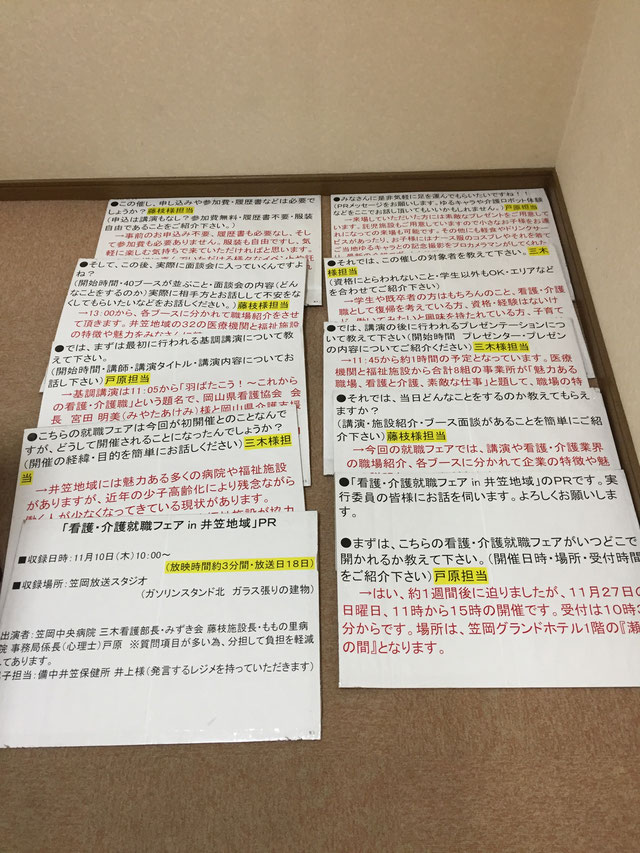 ●この催し、申し込みや参加費・履歴書などは必要で
しょうか？藤枝様担当
(申込は講演もなし？参加費無料・履歴書不要・服装
自由であることをご紹介下さい。)
→事前のお申込み不要、履歴書も必要なし、そし
て参加費も必要ありません。服装も自由ですし、気
軽に楽しむ気持ちで来ていただければと思います。
●そして、この後、実際に面談会に入っていくんですよ
ね？
(開始時間・40ブースが並ぶこと・面談会の内容(どん
なことをするのか)実際に相手方とお話しして不安をな
くしてもらいたいなどをお話しください。)藤枝様担当
→13:00から、各ブースに分かれて職場紹介をさせ
て頂きます。井笠地域の32の医療機関と福祉施設
の特徴や魅力を
●では、まずは最初に行われる基調講演について教
えて下さい。
(開始時間・講師・講演タイトル・講演内容についてお
話し下さい)戸原担当
→基調講演は11:05から「羽ばたこう！～これから
の看護・介護職」という題名で、岡山県看護協会　会
長　宮田 明美(みやたあけみ)様と岡山県介護支援
●こちらの就職フェアは今回が初開催とのことなんで
すが、どうして開催されることになったんでしょうか？
(開催の経緯・目的を簡単にお話しください)三木様担
当
→井笠地域には魅力ある多くの病院や福祉施設
がありますが、近年の少子高齢化により残念ながら
働く人が少なくなってきている現状があります。
「看護・介護就職フェア in 井笠地域」PR
■収録日時：11月10日(木)10:00～
(放映時間約3分間・放送日18日)
■収録場所：笠岡放送スタジオ
(ガソリンスタンド北　ガラス張りの建物)
出演者：笠岡中央病院 三木看護部長・みずき会 藤枝施設長・ももの里病
院 事務局係長(心理士)戸原　※質問項目が多い為、分担して負担を軽減
してあります。
子担当：備中井笠保健所 井上様(発言するレジメを持っていただきます)
●みなさんに是非気軽に足を運んでもらいたいですね！！
(PRメッセージをお願いします。ゆるキャラや介護ロボット体験
などをここでお話し頂いてもいいかもしれません。)戸原担当
→来場していただいた方には素敵なプレゼントをご用意して
います。託児施設もご用意していますので小さなお子様をお連
れになっての来場も可能です。その他にも軽食やドリンクサー
ビスがあったり、お子様にはナース服のコスプレやそれを着て
ご当地ゆるキャラとの記念撮影をプロカメラマンがしてくれた
●それでは、この催しの対象者を教えて下さい。三木
様担当
(資格にとらわれないこと・学生以外もOK・エリアなど
を合わせてご紹介下さい)
→学生や既卒者の方はもちろんのこと、看護・介護
職として復帰を考えている方、資格・経験はないけ
●では、講演の後に行われるプレゼンテーションにつ
いて教えて下さい(開始時間 プレゼンター・プレゼン
の内容についてご紹介ください)三木様担当
→11:45から約1時間の予定となっています。医療
機関と福祉施設から合計8組の事業所が「魅力ある
職場、看護と介護、素敵な仕事」と題して、職場の特
●それでは、当日どんなことをするのか教えてもらえ
ますか？
(講演・施設紹介・ブース面談があることを簡単にご紹
介下さい)藤枝様担当
→今回の就職フェアでは、講演や看護・介護業界
の職場紹介、各ブースに分かれて企業の特徴や魅
●「看護・介護就職フェア in 井笠地域」のPRです。実
行委員の皆様にお話を伺います。よろしくお願いしま
す。
●まずは、こちらの看護・介護就職フェアがいつどこで
開かれるか教えて下さい。(開催日時・場所・受付時間
をご紹介下さい)戸原担当
→はい、約1週間後に迫りましたが、11月27日の
日曜日、11時から15時の開催です。受付は10時3
分からです。場所は、笠岡グランドホテル1階の『瀬
の間』となります。